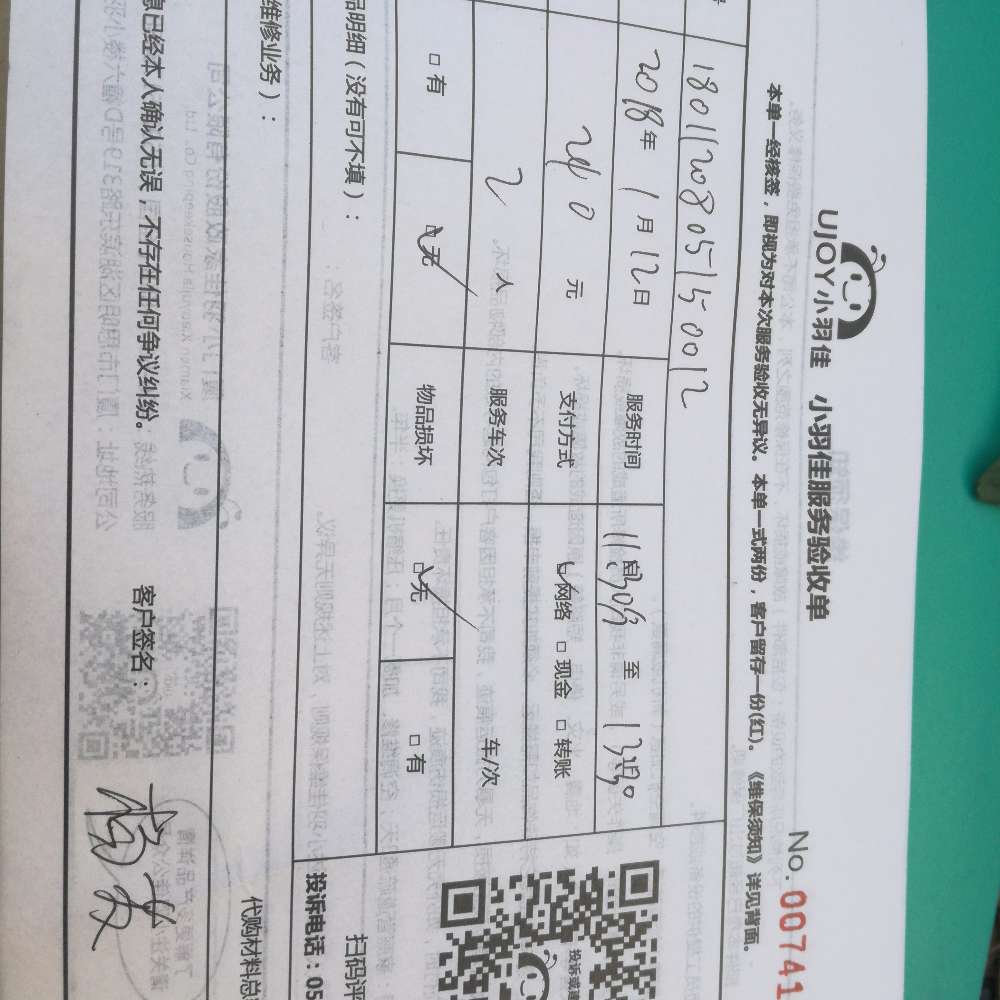 UJOY小羽佳 小羽佳服务验收单
No. 00741
本单一经核签，即视为对本次服务验收无异议。本单一式两份，客户留存一份(红)。《维保须知》详见背面。
1801120805150012
2018年1月12日 服务时间 11时30分 至 13时30
240元 支付方式 ☑网络 □现金 □转账
2人 服务车次 车/次
□有 ☑无 物品损坏 ☑无 □有
品明细（没有可不填）：
维修业务）：
息已经本人确认无误，不存在任何争议纠纷。 客户签名：
扫码评
投诉电话：05
代购材料总